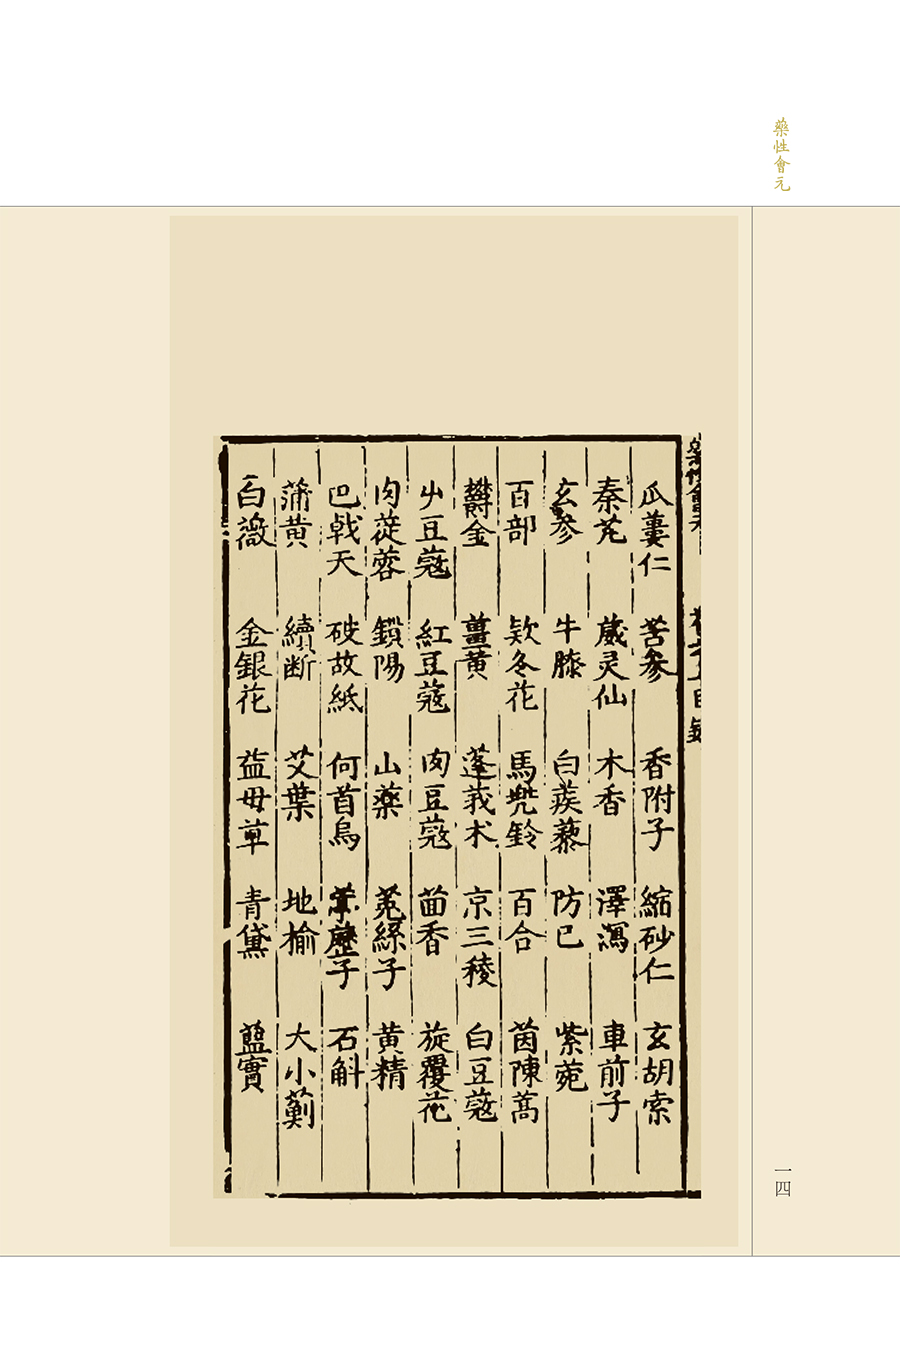 藥性會元
瓜蔞仁 苦參 香附子 縮砂仁 玄胡索
秦艽 葳灵仙 木香 澤瀉 車前子
玄參 牛膝 白蒺藜 防已 紫菀
百部 欵冬花 馬兠鈴 百合 茵陳蒿
欝金 薑黄 蓬莪术 京三稜 白豆蔻
草豆蔻 紅豆蔻 肉豆蔻 茴香 旋覆花
肉蓯蓉 鎖陽 山藥 菟絲子 黄精
巴戟天 破故紙 何首烏 葶藶子 石斛
蒲黄 續断 艾葉 地榆 大小薊
白薇 金銀花 益母草 青黛 藍實
一四